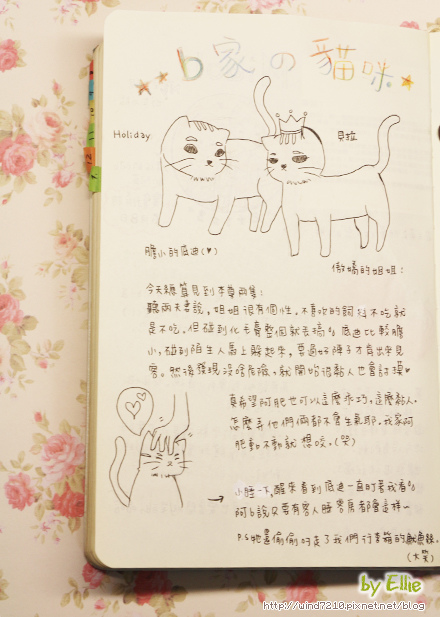 b家の貓咪
Holiday
貝拉
膽小的底迪(♥)
傲嬌的姐姐:
今天總算見到本尊兩隻!
聽兩夫妻說,姐姐很有個性,不喜吹的飼料不吃就
是不吃,但碰到化毛膏整個就去搞。底迪比較膽
小,碰到陌生人馬上躲起來,要過好陣子才肯出來見
客。然後發現沒啥危險,就開始很黏人也會討摸♥
真希望阿肥也可以這麼乖巧,這麼黏人,
怎麼弄他們倆都不會生氣耶,我家阿
肥動不動就想咬。(笑)
→ 小睡一下,醒來看到底迪一直盯著我看。
阿b說只要有客人睡客房都會這樣~
P.S 牠還偷偷叼走了我們行李箱的魷魚絲。
(大笑)
by Ellie
http://wind7210.pixnet.net/blog